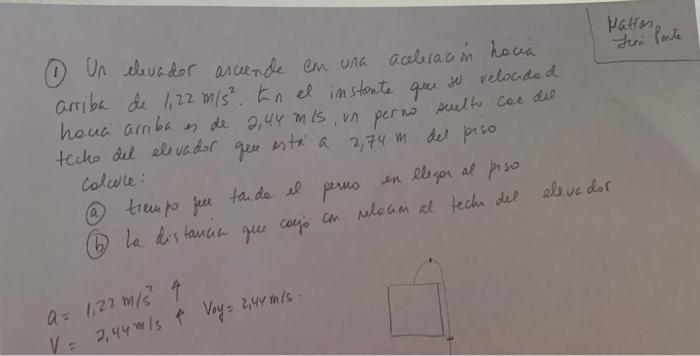 Matias
① Un elevador asciende con una aceleración hacia
arriba de 1,22 m/s². En el instante que su velocidad
hacia arriba es de 2,44 m/s, un perno suelto cae del
techo del elevador que está a 2,74 m del piso
Calcule:
ⓐ tiempo que tarda el perno en llegar al piso
ⓑ La distancia que cayó con relación al techo del elevador
a = 1,22 m/s² ↑
V = 2,44 m/s ↑ Voy = 2,44 m/s.